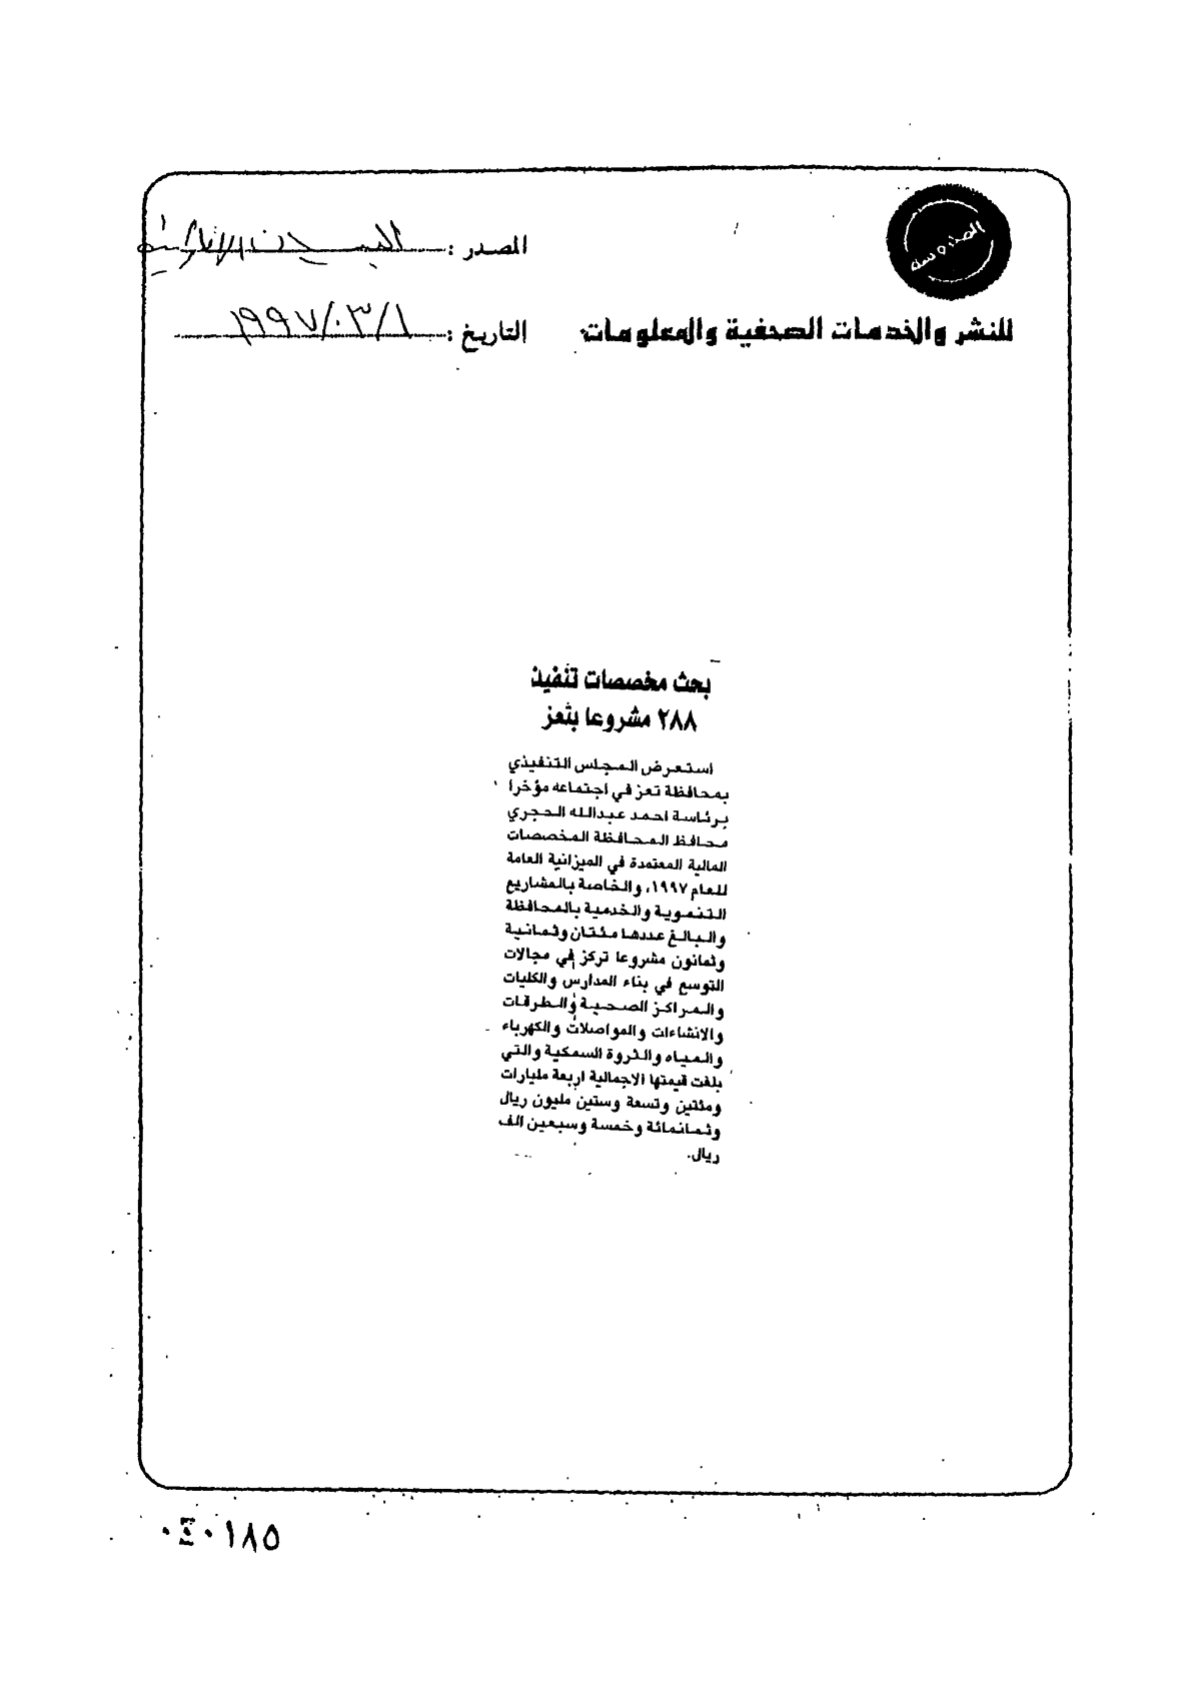 المصدر :
للنشر والخدمات الصحفية والمعلومات
التاريخ : ١٩٩٧/٠٣/١
بحث مخصصات تنفيذ
٢٨٨ مشروعا بتعز
استعرض المجلس التنفيذي
بمحافظة تعز في اجتماعه مؤخرا
برئاسة احمد عبدالله الحجري
محافظ المحافظة المخصصات
المالية المعتمدة في الميزانية العامة
للعام ١٩٩٧، والخاصة بالمشاريع
التنموية والخدمية بالمحافظة
والبالغ عددها مئتان وثمانية
وثمانون مشروعا تركز في مجالات
التوسع في بناء المدارس والكليات
والمراكز الصحية والطرقات
والانشاءات والمواصلات والكهرباء
والمياه والثروة السمكية والتي
بلغت قيمتها الاجمالية اربعة مليارات
ومئتين وتسعة وستين مليون ريال
وثمانمائة وخمسة وسبعين الف
ريال.
٠٤٠١٨٥